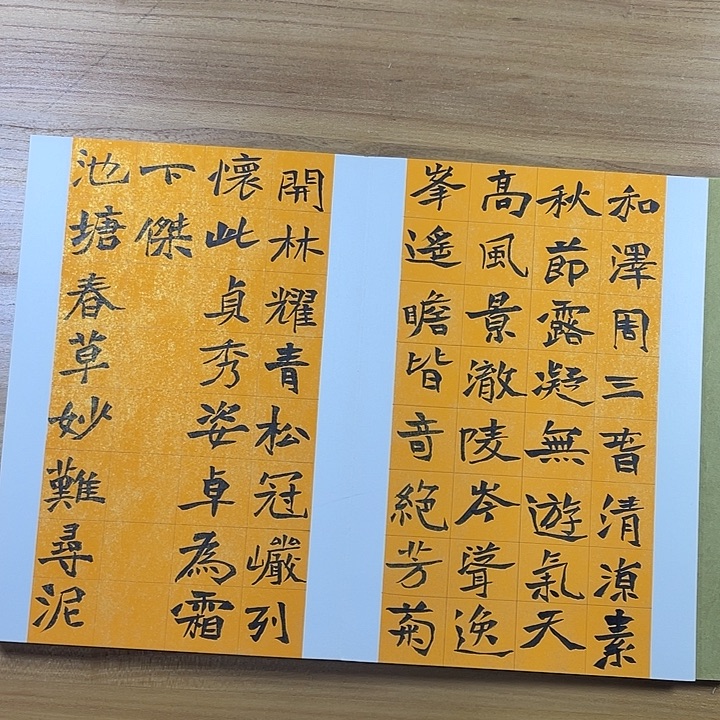 和澤周三旾清涼素
秋節露凝無遊氣天
高風景澈陵岑聳逸
峯遙瞻皆竒絕芳菊
開林耀青松冠巖列
懷此貞秀姿卓為霜
下傑
池塘春草妙難尋泥